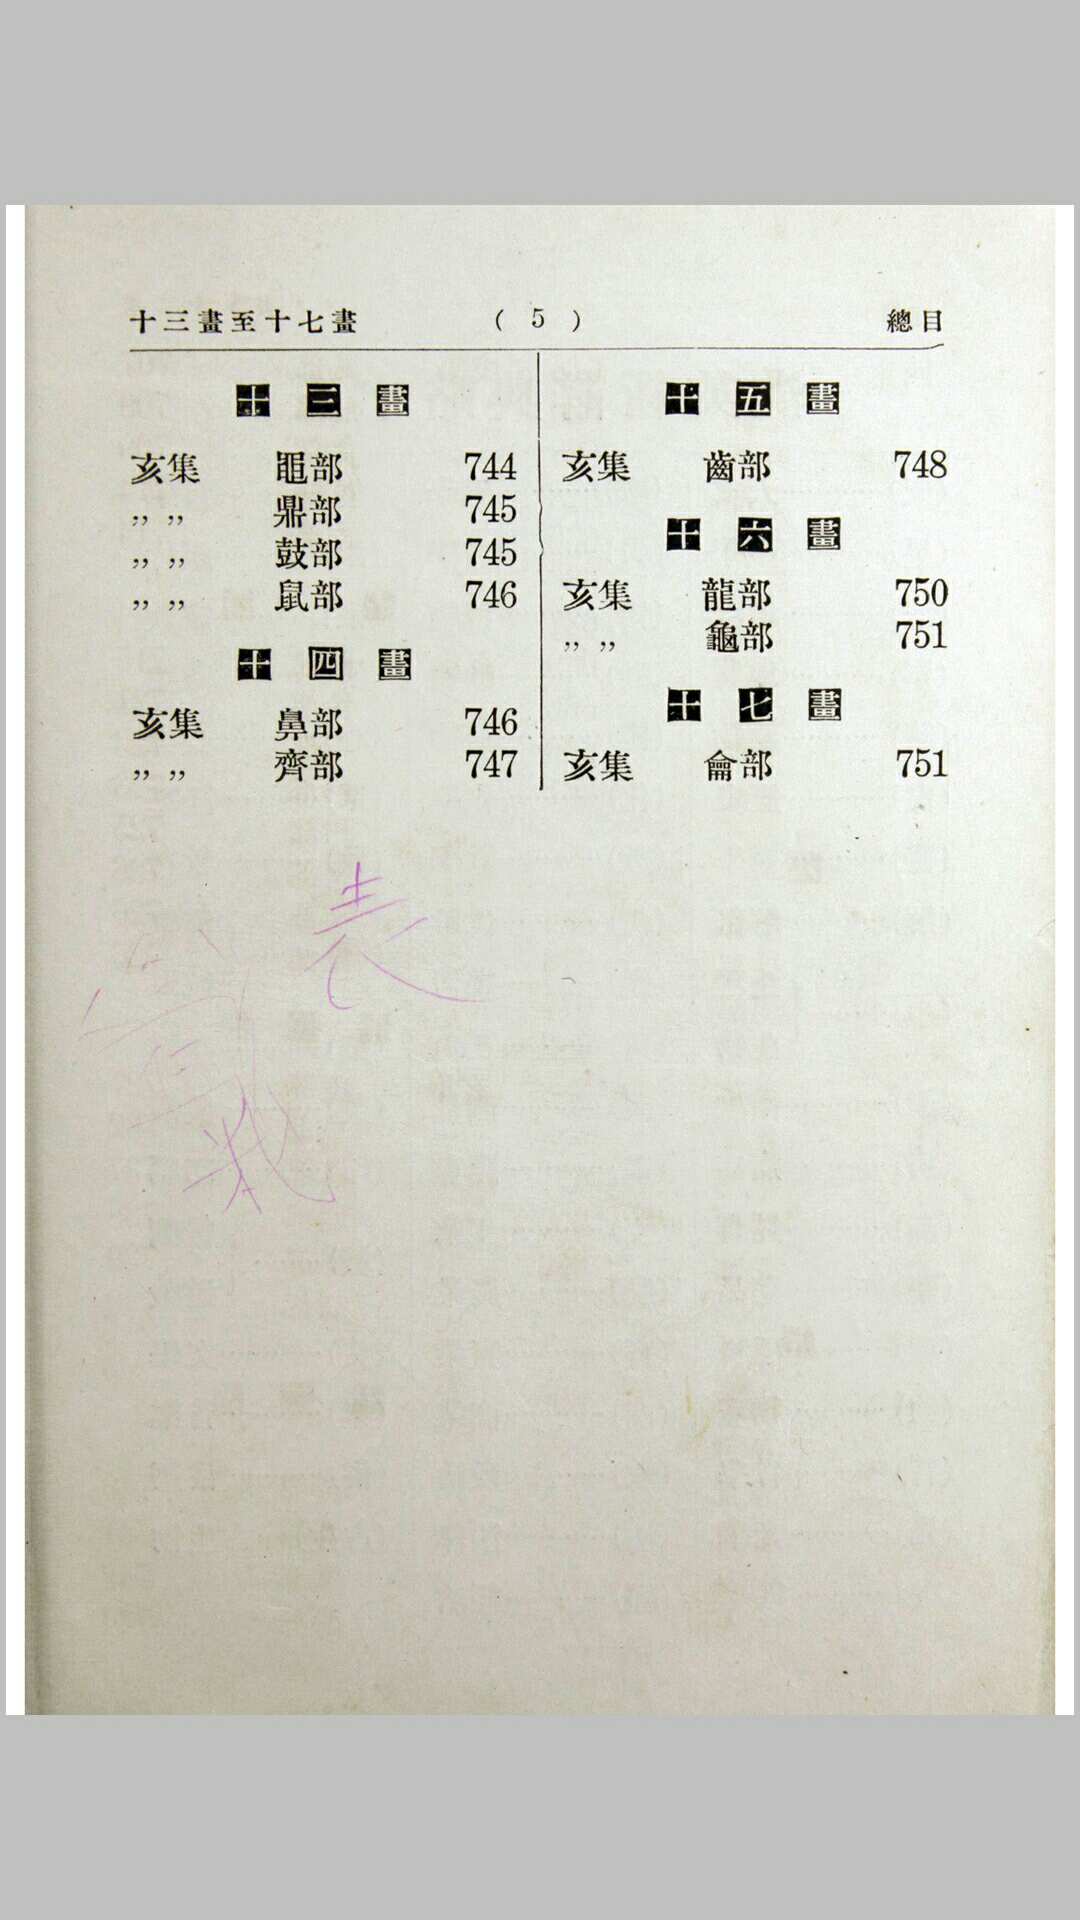 十三畫至十七畫 ( 5 ) 總目
十三畫
亥集 黽部 744
,, ,, 鼎部 745
,, ,, 鼓部 745
,, ,, 鼠部 746
十四畫
亥集 鼻部 746
,, ,, 齊部 747
十五畫
亥集 齒部 748
十六畫
亥集 龍部 750
,, ,, 龜部 751
十七畫
亥集 龠部 751
表